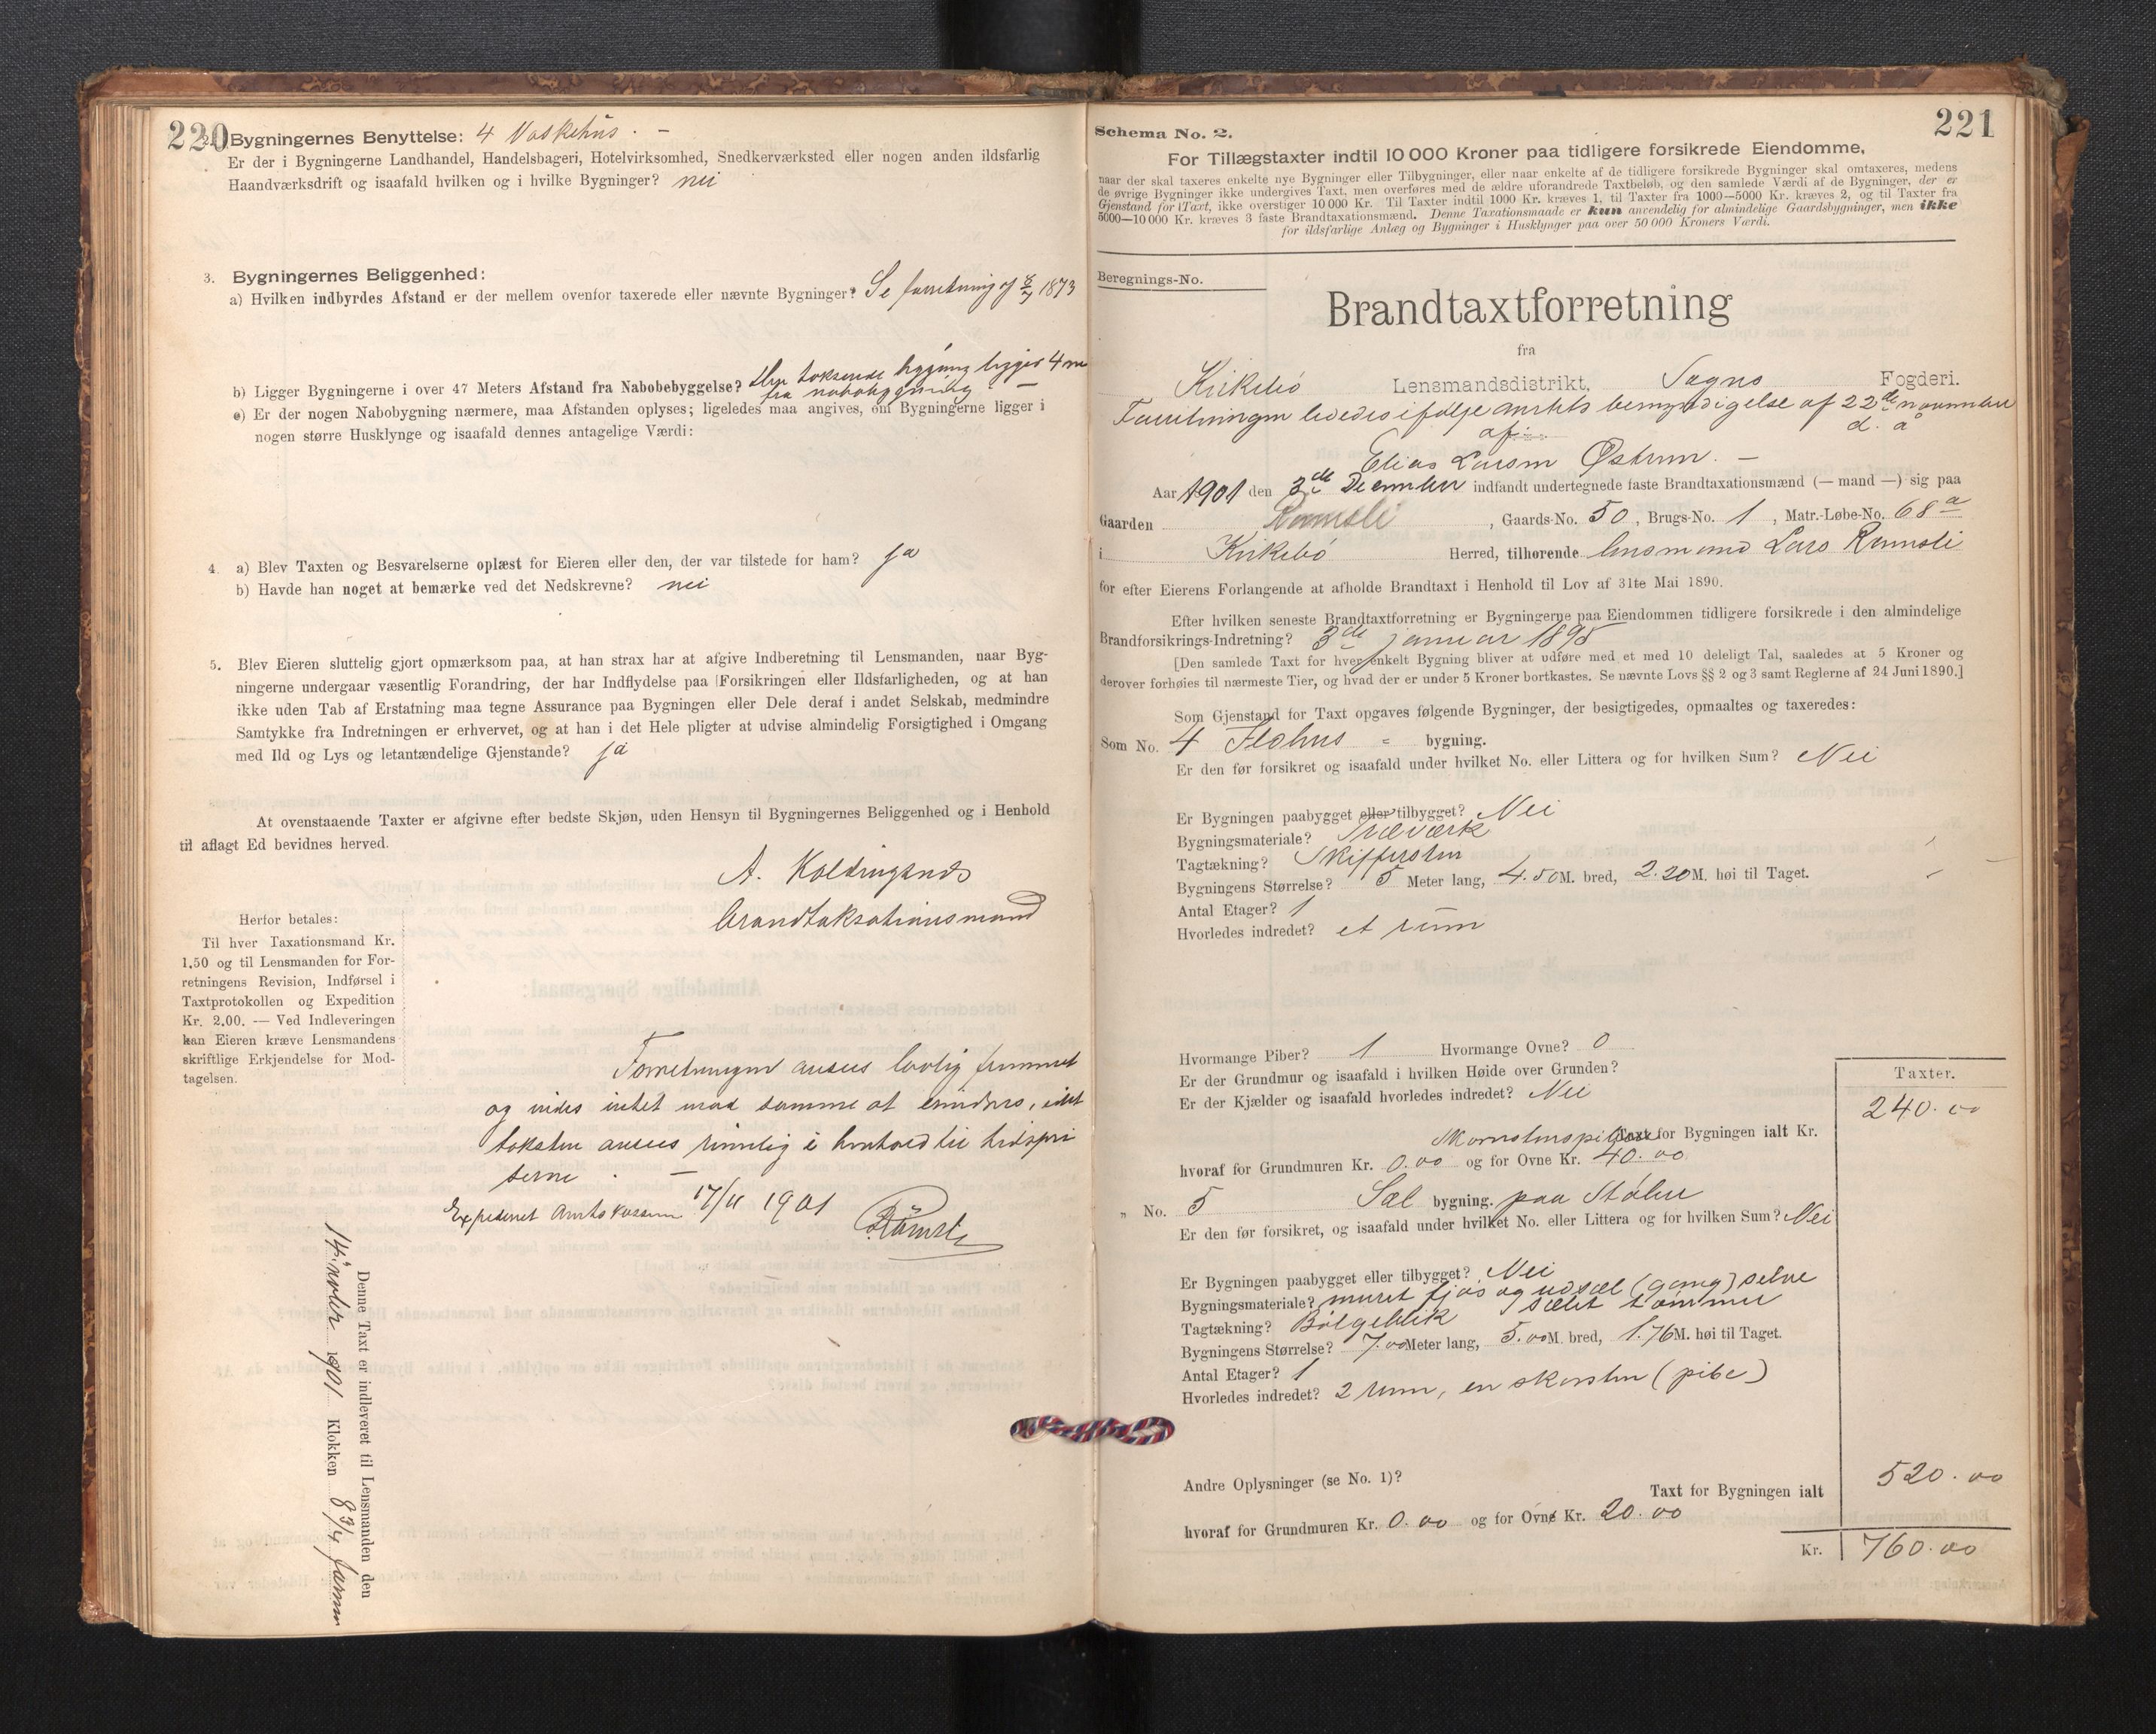 220
2. Bygningernes Benyttelse: 4 Vaskehus. —
Er der i Bygningerne Landhandel, Handelsbageri, Hotelvirksomhed, Snedkerværksted eller nogen anden ildsfarlig
Haandværksdrift og isaafald hvilken og i hvilke Bygninger? nei
3. Bygningernes Beliggenhed:
a) Hvilken indbyrdes Afstand er der mellem ovenfor taxerede eller nævnte Bygninger? Se forretning af 8/7 1873
b) Ligger Bygningerne i over 47 Meters Afstand fra Nabobebyggelse? Den takserede bygning ligger 4 m
fra nabobygning —
c) Er der nogen Nabobygning nærmere, maa Afstanden oplyses; ligeledes maa angives, om Bygningerne ligger i
nogen større Husklynge og isaafald dennes antagelige Værdi:
4. a) Blev Taxten og Besvarelserne oplæst for Eieren eller den, der var tilstede for ham? ja
b) Havde han noget at bemærke ved det Nedskrevne? nei
5. Blev Eieren sluttelig gjort opmærksom paa, at han strax har at afgive Indberetning til Lensmanden, naar Byg-
ningerne undergaar væsentlig Forandring, der har Indflydelse paa Forsikringen eller Ildsfarligheden, og at han
ikke uden Tab af Erstatning maa tegne Assurance paa Bygningen eller Dele deraf i andet Selskab, medmindre
Samtykke fra Indretningen er erhvervet, og at han i det Hele pligter at udvise almindelig Forsigtighed i Omgang
med Ild og Lys og letantændelige Gjenstande? ja
At ovenstaaende Taxter er afgivne efter bedste Skjøn, uden Hensyn til Bygningernes Beliggenhed og i Henhold
til aflagt Ed bevidnes herved.
A. Koldingsnes
brandtaksationsmand
Herfor betales:
Til hver Taxationsmand Kr.
1,50 og til Lensmanden for For-
retningens Revision, Indførsel i
Taxtprotokollen og Expedition
Kr. 2,00. — Ved Indleveringen
kan Eieren kræve Lensmandens
skriftlige Erkjendelse for Mod-
tagelsen.
Forretningen ansees lovlig fremmet
og vides intet mod samme at erindres, idet
taksten ansees rimelig i henhold til tidspri
serne. —
Expederet Amtskassen 17/11 1901
Denne Taxt er indleveret til Lensmanden den
14. novber 1901 Klokken 8 3/4 form
221
Schema No. 2.
For Tillægstaxter indtil 10 000 Kroner paa tidligere forsikrede Eiendomme,
naar der skal taxeres enkelte nye Bygninger eller Tilbygninger, eller naar enkelte af de tidligere forsikrede Bygninger skal omtaxeres, medens
de øvrige Bygninger ikke undergives Taxt, men overføres med de ældre uforandrede Taxtbeløb, og den samlede Værdi af de Bygninger, der er
Gjenstand for Taxt, ikke overstiger 10 000 Kr. Til Taxter indtil 1000 Kr. kræves 1, til Taxter fra 1000—5000 Kr. kræves 2, og til Taxter fra
5000—10 000 Kr. kræves 3 faste Brandtaxationsmænd. Denne Taxationsmaade er kun anvendelig for almindelige Gaardsbygninger, men ikke
for ildsfarlige Anlæg og Bygninger i Husklynger paa over 50 000 Kroners Værdi.
Beregnings-No.
Brandtaxtforretning
fra
Kirkebø Lensmandsdistrikt, Sogns Fogderi.
Forretningen lededes ifølge amtets bemyndigelse af 22de november
d. å
af
Elias Larsen Østrem. —
Aar 1901 den 3de December indfandt undertegnede faste Brandtaxationsmænd (— mand —) sig paa
Gaarden Ramsli, Gaards-No. 50, Brugs-No. 1, Matr.-Løbe-No. 68a
i Kirkebø Herred, tilhørende lensmand Lars Ramsli
for efter Eierens Forlangende at afholde Brandtaxt i Henhold til Lov af 31te Mai 1890.
Efter hvilken seneste Brandtaxtforretning er Bygningerne paa Eiendommen tidligere forsikrede i den almindelige
Brandforsikrings-Indretning? 3de januar 1895
[Den samlede Taxt for hver enkelt Bygning bliver at udføre med et med 10 deleligt Tal, saaledes at 5 Kroner og
derover forhøies til nærmeste Tier, og hvad der er under 5 Kroner bortkastes. Se nævnte Lovs §§ 2 og 3 samt Reglerne af 24 Juni 1890.]
Som Gjenstand for Taxt opgaves følgende Bygninger, der besigtigedes, opmaaltes og taxeredes:
Som No. 4 Ildhus - bygning.
Er den før forsikret og isaafald under hvilket No. eller Littera og for hvilken Sum? Nei
Er Bygningen paabygget eller tilbygget? Nei
Bygningsmateriale? Træværk
Tagtækning? Skiffersten
Bygningens Størrelse? 5 Meter lang, 4.50 M. bred, 2.20 M. høi til Taget.
Antal Etager? 1
Hvorledes indredet? et rum
Hvormange Piber? 1 Hvormange Ovne? 0
Er der Grundmur og isaafald i hvilken Høide over Grunden?
Er der Kjælder og isaafald hvorledes indredet? Nei
Taxter.
Taxt for Bygningen ialt Kr. 240.00
hvoraf for Grundmuren Kr. 0.00 og for Ovne Kr. 40.00
„ No. 5 Sæl bygning. paa Stølen
Er den før forsikret, og isaafald under hvilket No. eller Littera og for hvilken Sum? Nei
Er Bygningen paabygget eller tilbygget? Nei
Bygningsmateriale? muret fjøs og udsæl (gang) selve
sælet tømmer
Tagtækning? Bølgeblik
Bygningens Størrelse? 7.00 Meter lang, 5.00 M. bred, 1.76 M. høi til Taget.
Antal Etager? 1
Hvorledes indredet? 2 rum, en skorsten (pibe)
Andre Oplysninger (se No. 1)?
Taxt for Bygningen ialt 520.00
hvoraf for Grundmuren Kr. 0.00 og for Ovne Kr. 20.00
Kr. 760.00